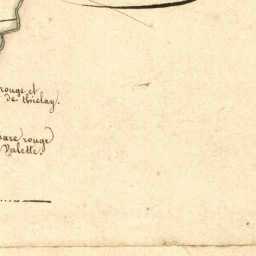 rouge et
de thielay.
rouge
Valette.